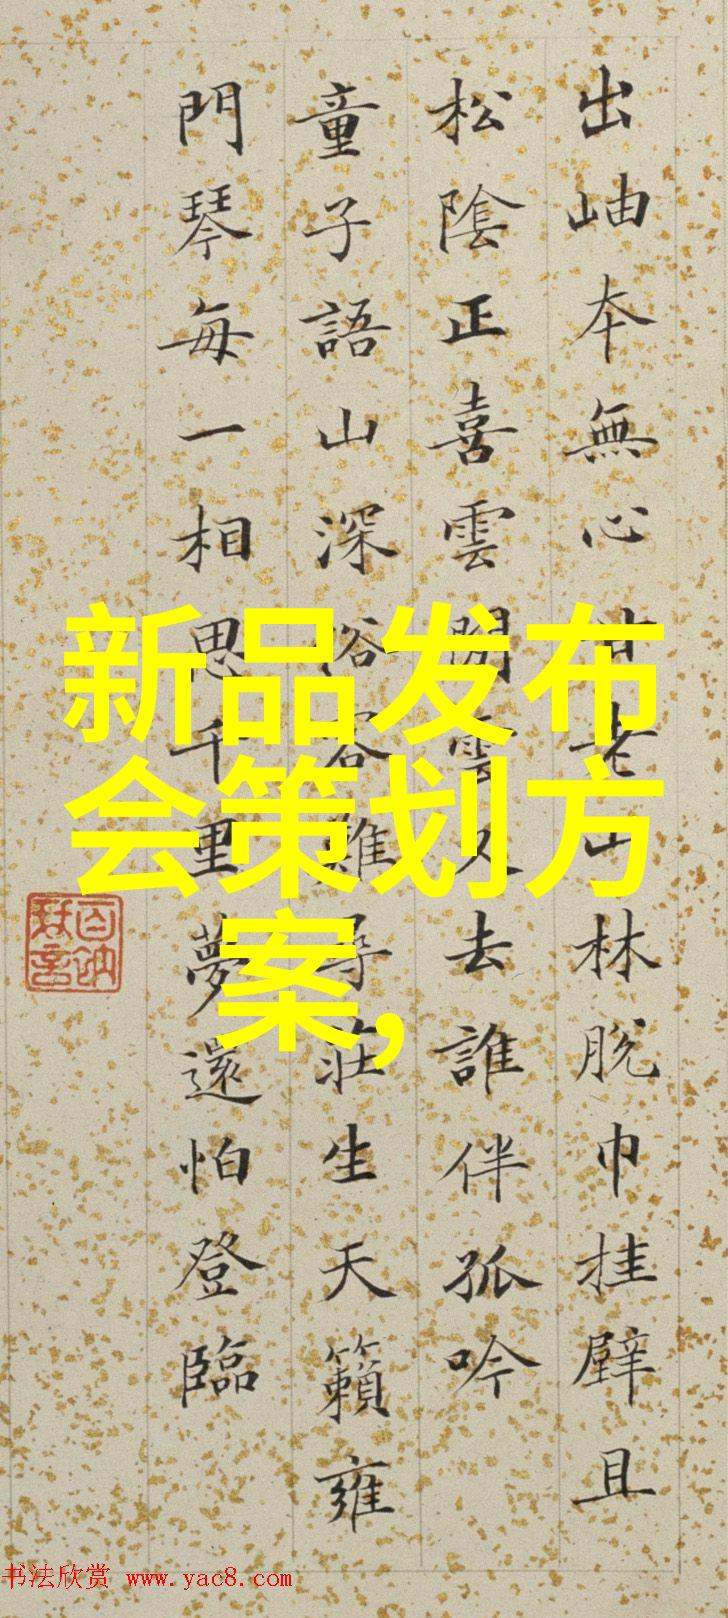 出岫本無心甘老山林脫巾挂壁且
松陰正喜雲閒雲又去誰伴孤吟
童子語山深俗客難尋莊生天籟雍
門琴每一相思千里夢還怕登臨
新品发布
会策划方
案,
书法欣赏 www.yac8.com